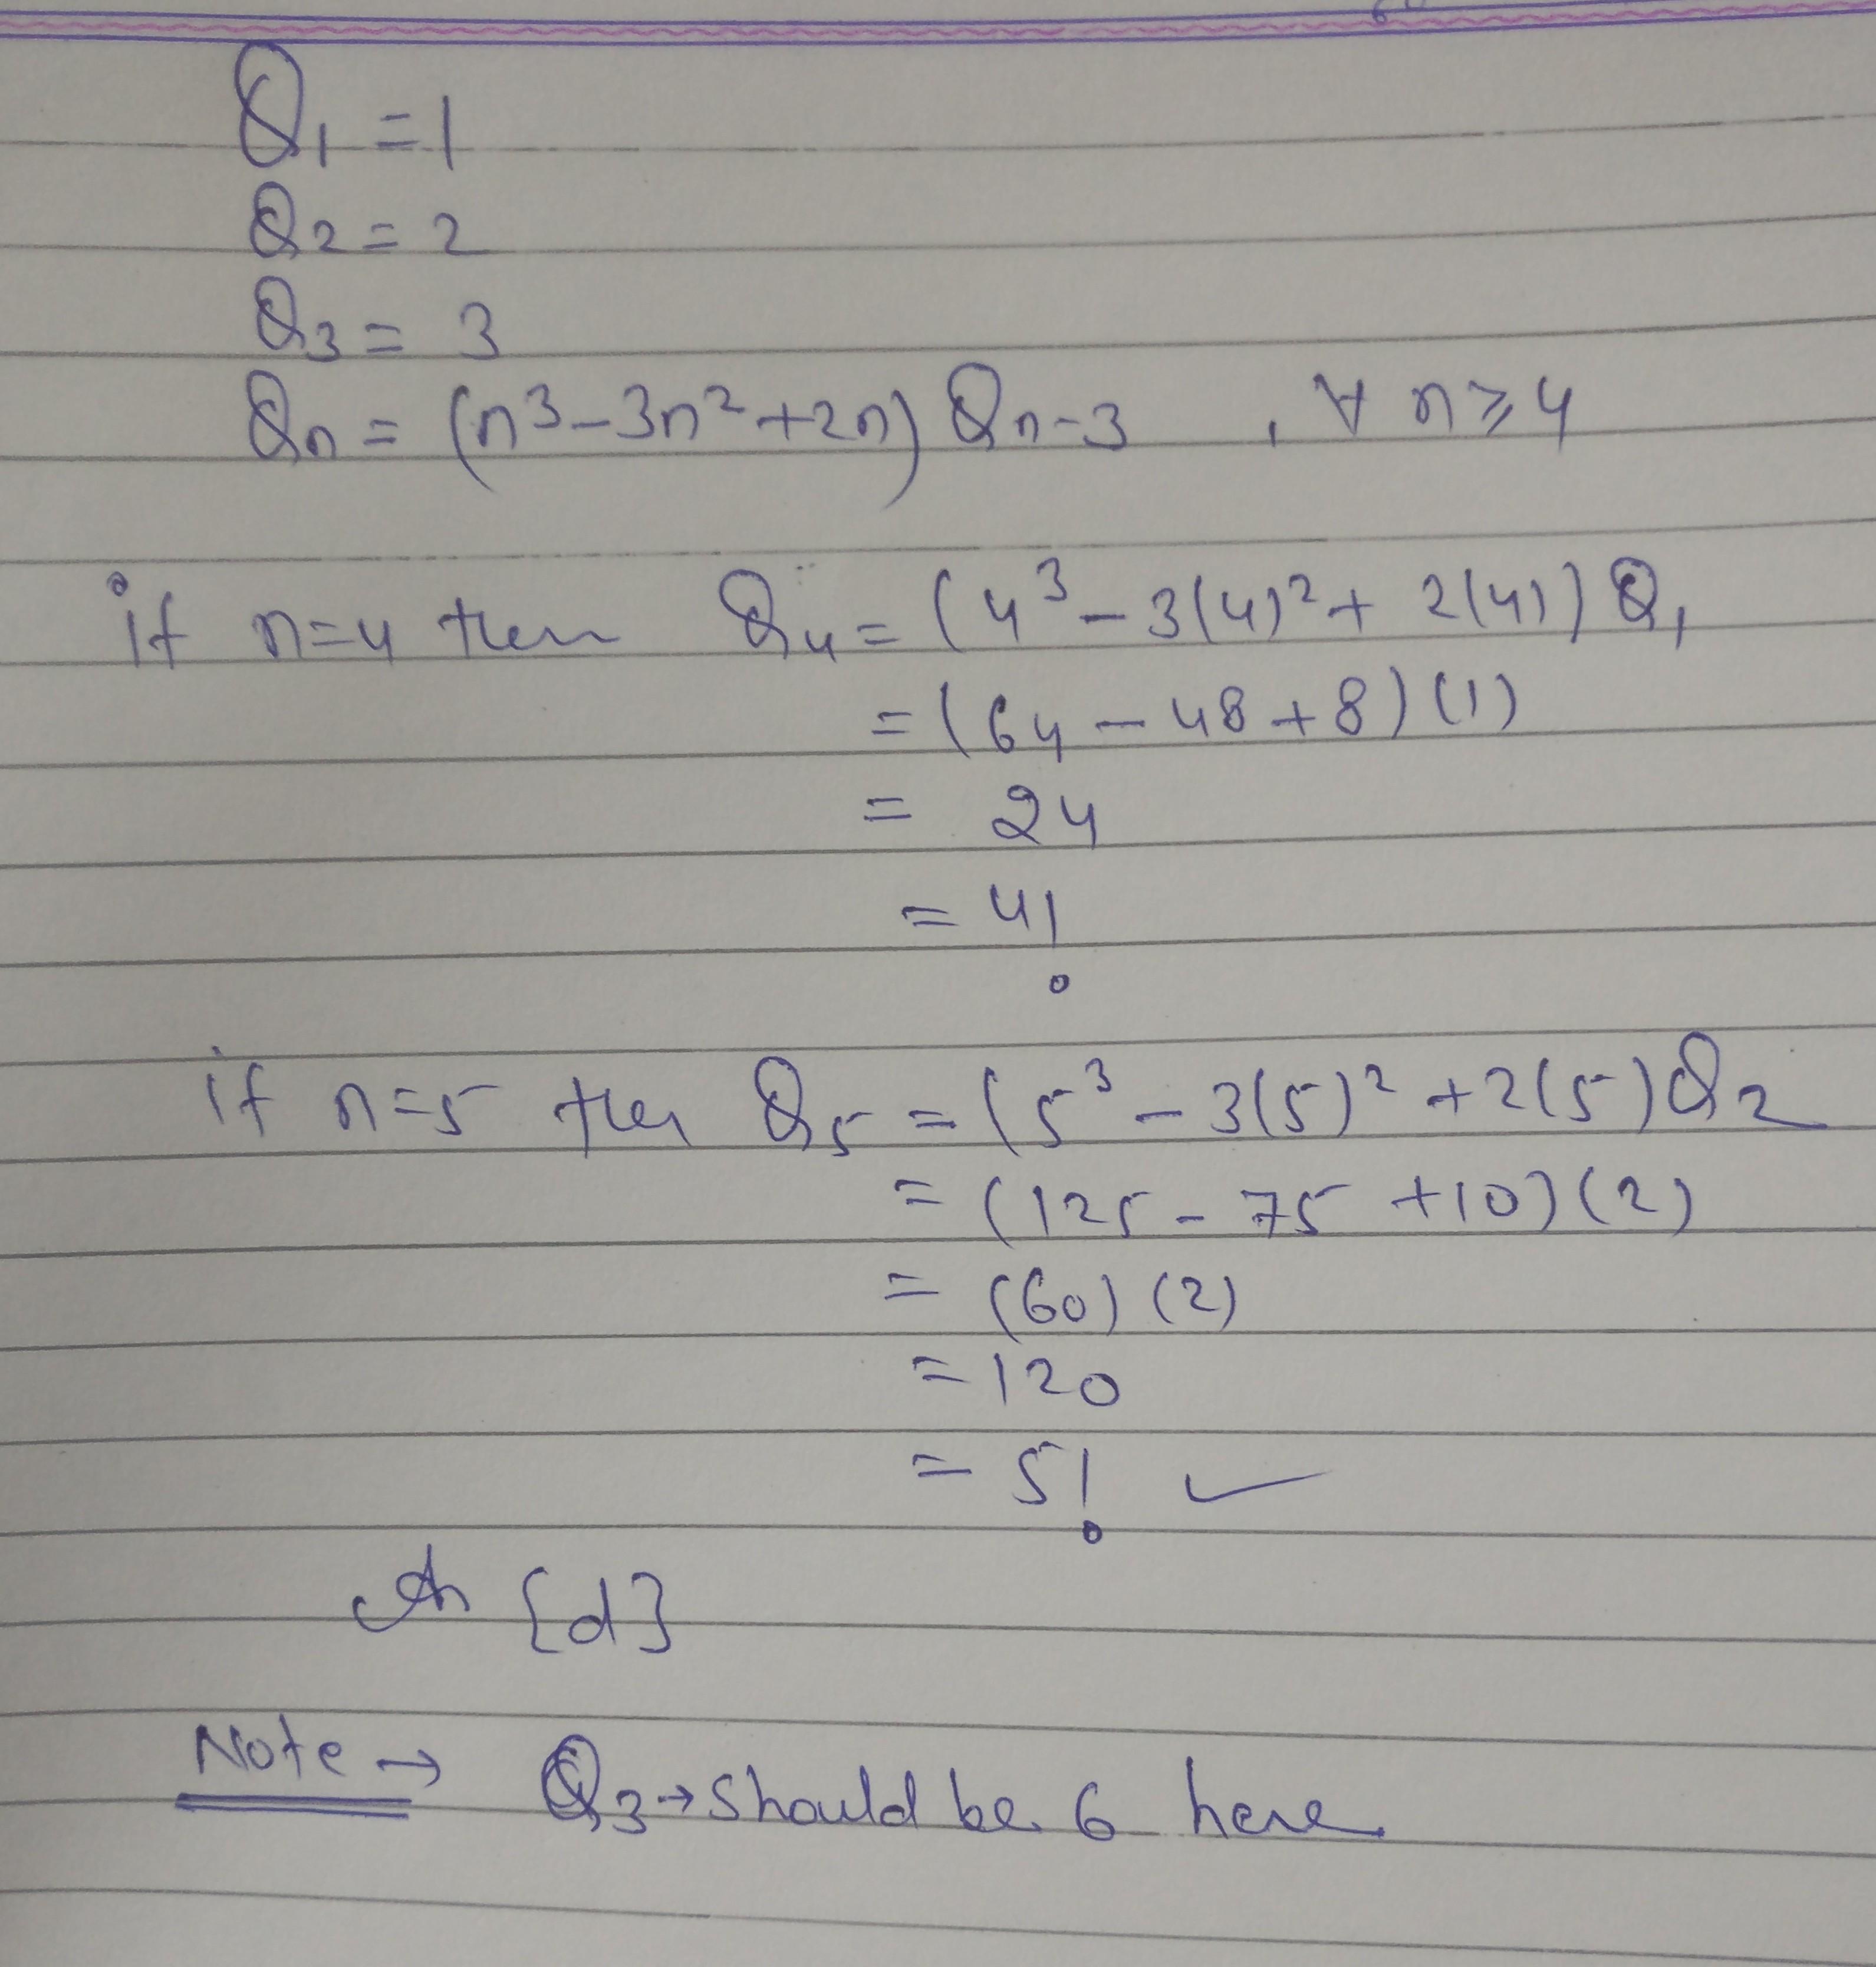 Q₁ = 1
Q₂ = 2
Q₃ = 3
Qn = (n³ - 3n² + 2n) Qn-3 , ∀ n ≥ 4
if n=4 then Q₄ = (4³ - 3(4)² + 2(4)) Q₁
= (64 - 48 + 8) (1)
= 24
= 4!
if n=5 then Q₅ = (5³ - 3(5)² + 2(5) Q₂
= (125 - 75 + 10) (2)
= (60) (2)
= 120
= 5! ✓
{d}
Note → Q₃ → should be 6 here